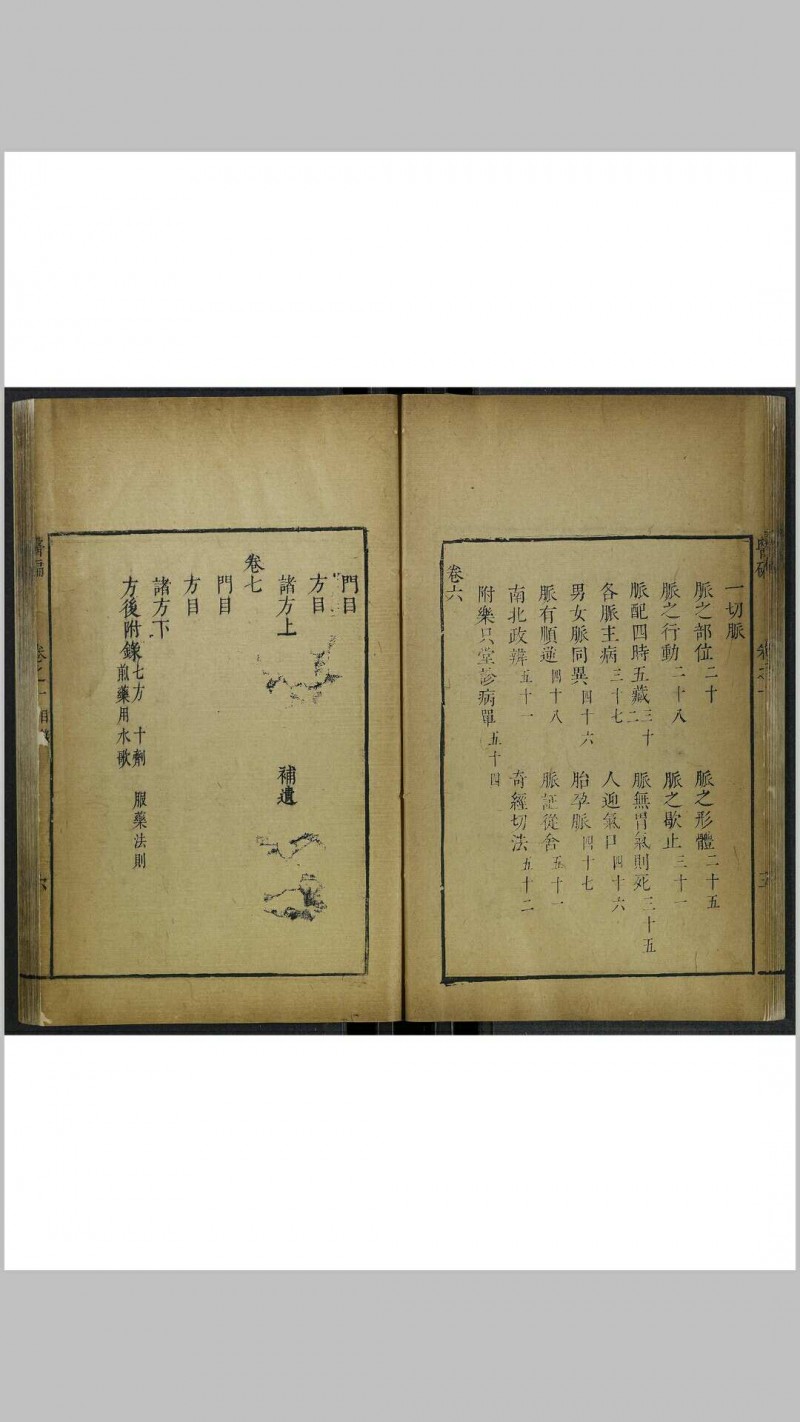 一切脈
脈之部位二十 脈之形體二十五
脈之行動二十八 脈之歇止三十一
脈配四時五藏三十二 脈無胃氣則死三十五
各脈主病三十七 人迎氣口四十六
男女脈同異四十六 胎孕脈四十七
脈有順逆四十八 脈証從舍五十一
南北政辨五十一 奇經切法五十二
附樂只堂診病單五十四
卷六
門目
方目
諸方上 補遺
卷七
門目
方目
諸方下
方後附錄 七方 十劑 服藥法則
煎藥用水歌